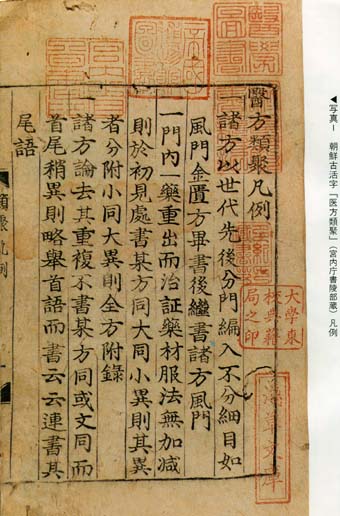 ◀写真1 朝鮮古活字「医方類聚」(宮内庁書陵部蔵)凡例
醫方類聚凡例
一諸方以世代先後分門編入不分細目如
風門金匱方畢書後繼書諸方風門
一門內一藥重出而治証藥材服法無加減
則於初見處書某方同大同小異則其異
者分附小同大異則全方附錄
一諸方論去其重複不書某方同或文同而
首尾稍異則略舉首語而書云云連書其
尾語
大學東
校典籍
局之印